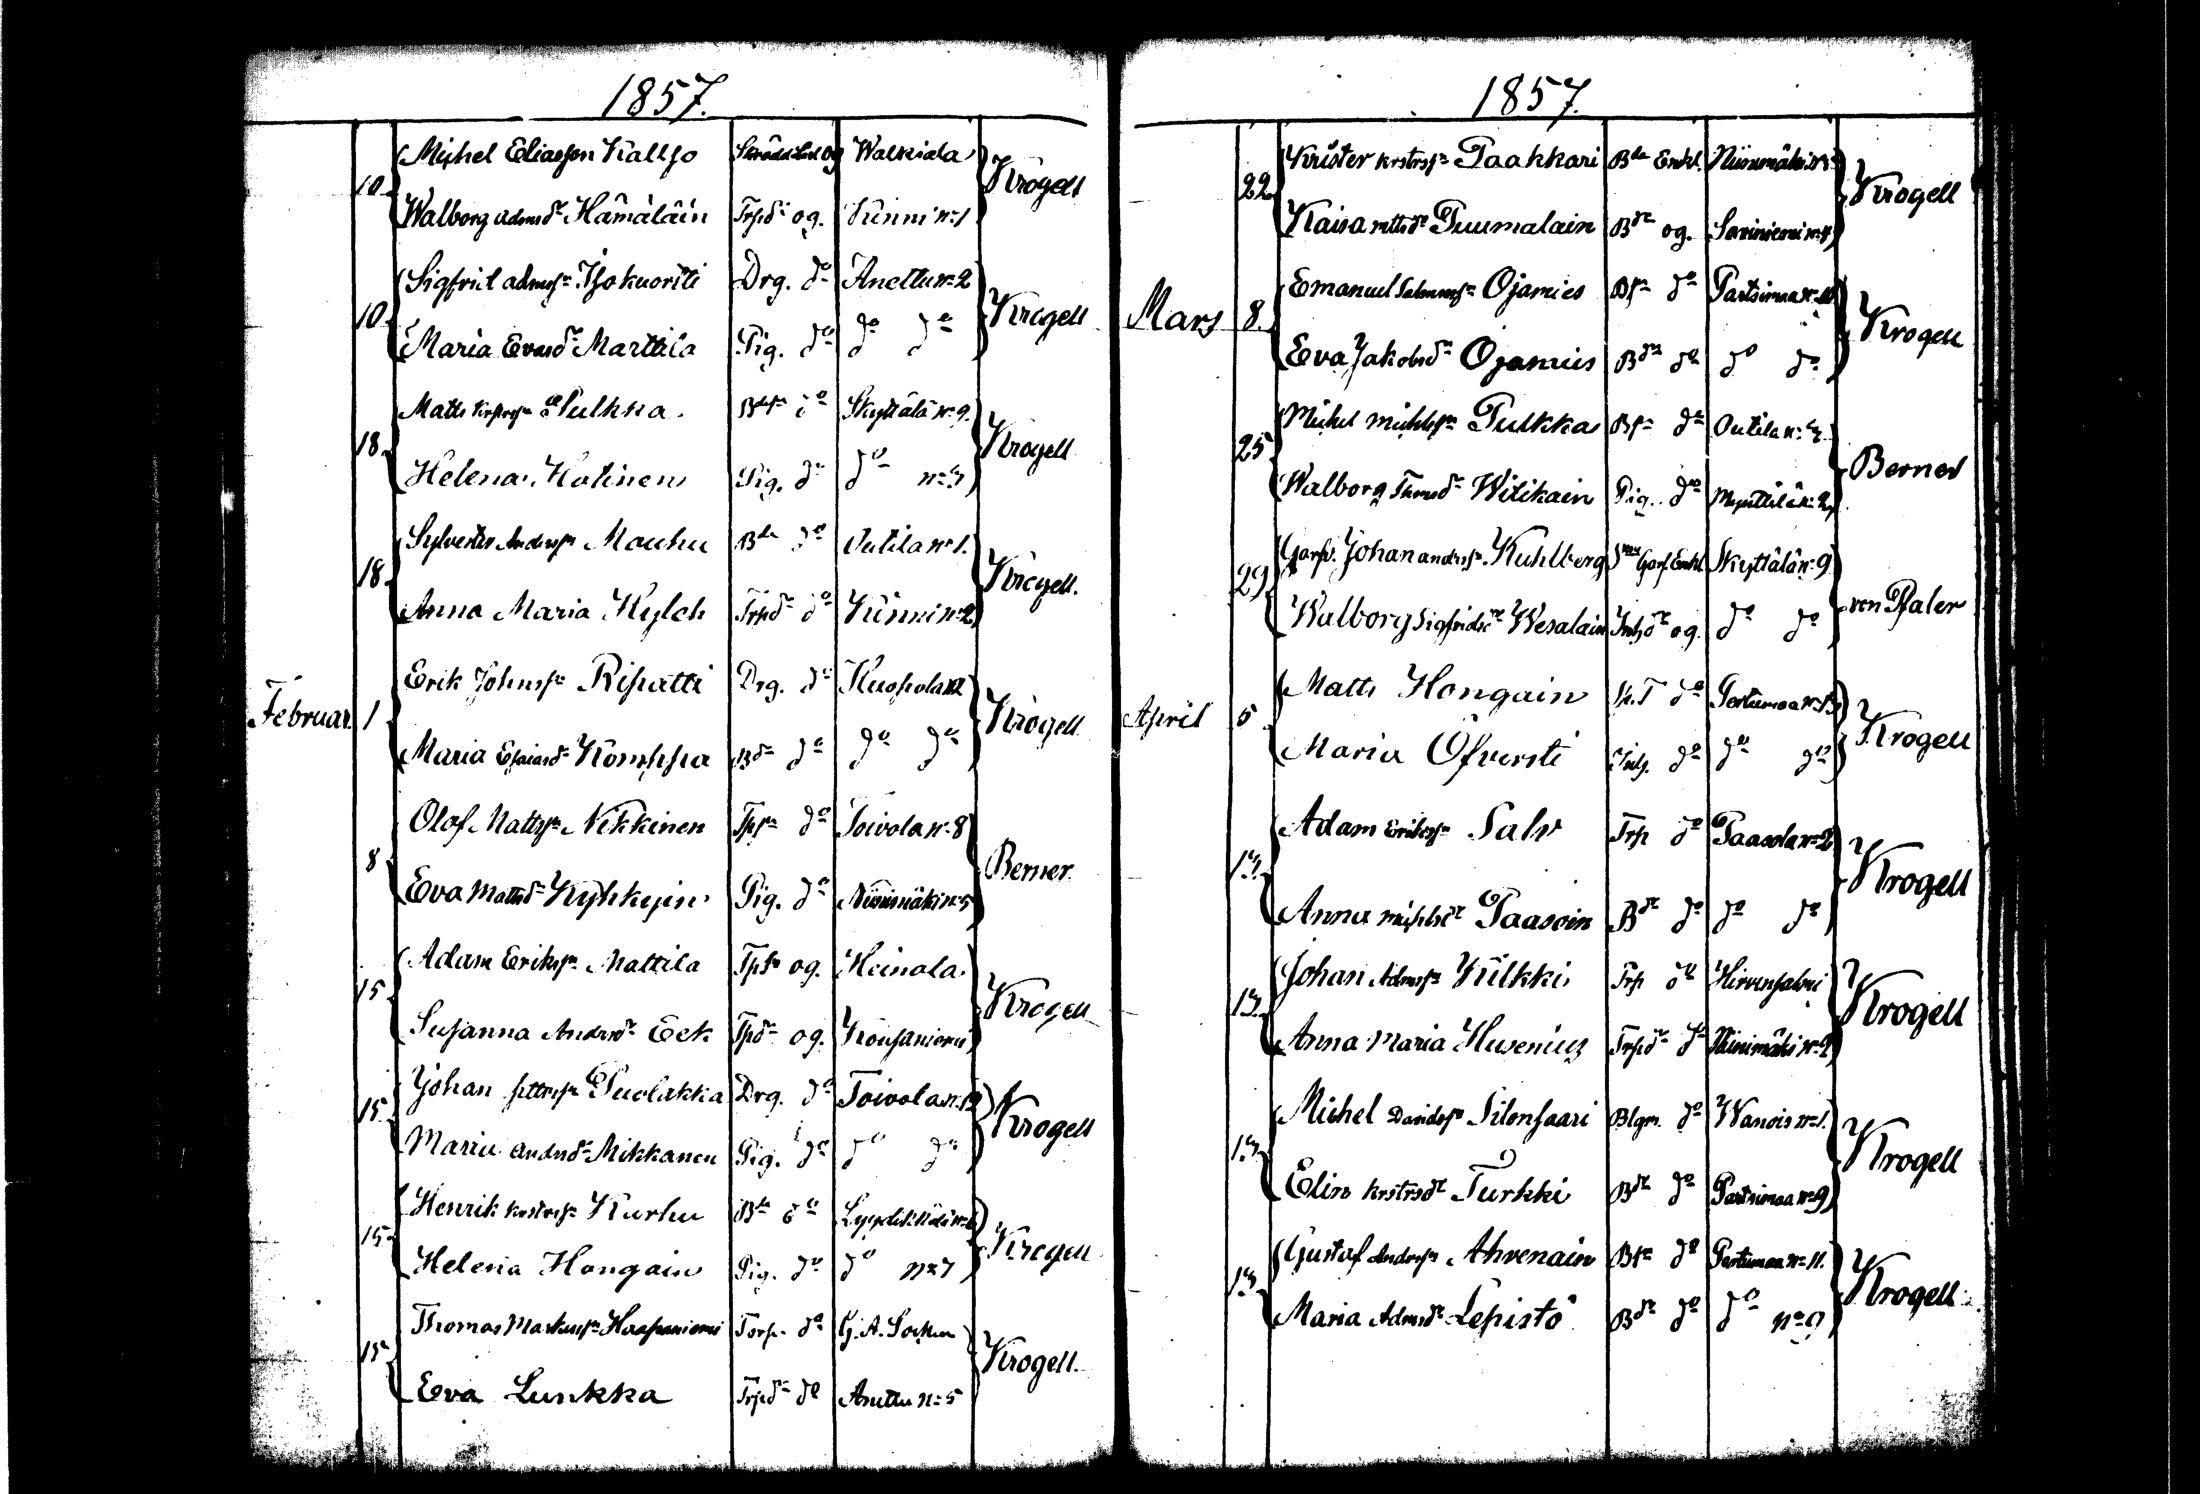 1857.
10. Michel Eliasson Kallio Skrädd og Walkiala Krogell
Walborg Admsdr Hämäläin Trpdr og. Kinni No 1
10 Sigfrid admss Isokuortti Drg. do Anettu No 2 Krogell
Maria Evasdr Marttila Pig. do do do
18. Matts Pulkka do Skyttälä No 9. Krogell
Helena Hatinen Pig. do do No 3
18. Sylvester Anderss Mauhu Bde do Outila No 1. Krogell.
Anna Maria Kylch Trpdr do Kinni No 2
Februar. 1 Erik Johnss Ripatti Drg. do Kuopola Krogell
Maria Esaiasdr Komppa Bdr do do do
8 Olof Mattss Nikkinen Tpsn do Toivola No 8 Berner
Eva Mattsdr Kyhkyin Pig. do Niinimäki No 5
15 Adam Erikss Mattila Tpsn og. Heinola Krogell
Susanna Andersdr Eek Tpdr og. Koiraniemi
15. Johan pettrss Puolakka Drg. do Toivola No 12 Krogell
Maria andrsdr Mikkanen Pig. do do do
15 Henrik krstrss Kurhu Bde do Lyydikkälä No 6 Krogell
Helena Hongain Pig. do do No 7
15 Thomas Markuss Haapaniemi Torp. do G. A. Socken Krogell.
Eva Lunkka Trpdr do Anettu No 5
1857.
22. Krister krstrss Paakkari Bde Enkl. Niinimäki Krogell
Kaisa mttsdr Puumalain Bdr og. Saviniemi No 4
Mars 8. Emanuel Salomss Ojamies Bsn do Partsimaa Krogell
Eva Jakobsdr Ojamies Bdr do do do
25 Michel michlss Pulkka Bsn do Outila Berner
Walborg Thmsdr Witikain Pig. do Mynttilä No 2
29 Garfv. Johan andrss Kuhlberg Garf. Enkl Skyttälä No 9 von Pfaler
Walborg Sigfridsdr Wesalain Inhdr og. do do
April 5. Matts Hongain do Pertumaa No 13 Krogell
Maria Öfversti Inh. do do do
13. Adam Erikss Salv Trp do Paasola No 2 Krogell
Anna michlsdr Paasoin Bdr do do do
13. Johan Admss Kilkki Trp do Hirvensalmi Krogell
Anna Maria Husenius Trpdr do Niinimäki No 2
13. Michel Davidss Silonsaari Blgm. do Wanois No 1. Krogell
Elin krstrsdr Turkki Bdr do Partsimaa No 9
13. Gustaf Andrss Ahvenain Bsn do Pertumaa No 11. Krogell
Maria Admsdr Lepistö Bdr do do No 9